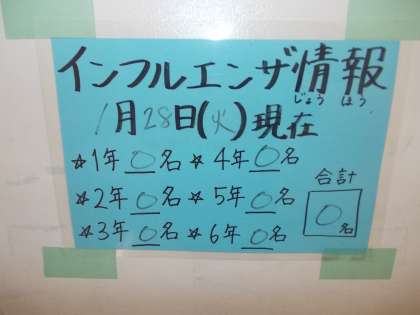 インフルエンザ情報
じょう ほう
1月28日(火)現在
☆1年 0名 ☆4年 0名
☆2年 0名 ☆5年 0名
☆3年 0名 ☆6年 0名
合計
0名